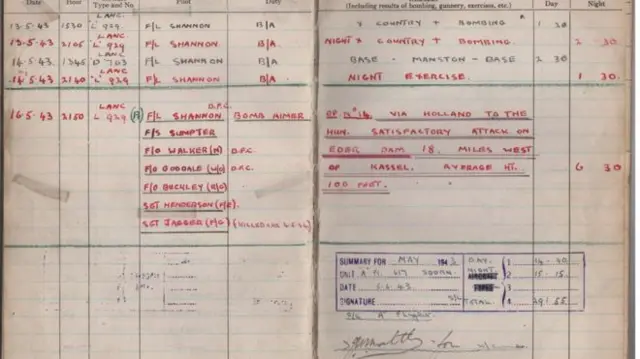 Date Hour Type and No. Pilot Duty (Including results of bombing, gunnery, exercises, etc.) Day Night
13·5·43 1530 LANC. F/L SHANNON B/A X COUNTRY + BOMBING 1 30
13·5·43 LANC. 'L' 929 F/L SHANNON B/A. NIGHT X COUNTRY + BOMBING. 2 30
14·5·43. 1345 LANC F/L SHANNON B/A. BASE - MANSTON - BASE 2 30
14·5·43 2140 LANC. 'L' 929 F/L SHANNON B/A. NIGHT EXERCISE. 1 30.
16·5·43 2150 LANC. L 929 (A) F/L SHANNON D.F.C. BOMB AIMER OP. Nº 14. VIA HOLLAND TO THE
F/S SUMPTER HUN. SATISFACTORY ATTACK ON
F/O WALKER (N) D.F.C. EDER DAM 18. MILES WEST
F/O GOODALE (W/O) D.F.C. OF KASSEL. AVERAGE HT. 6 30
F/O BUCKLEY (R/G) 100 FEET.
SGT HENDERSON (F/E).
SGT JAGGER (F/G) (KILLED
SUMMARY FOR MAY 1943 DAY. 1
UNIT 'A' 617 SQDRN. NIGHT 2 15 · 15
DATE 43 3
SIGNATURE TOTAL. 4